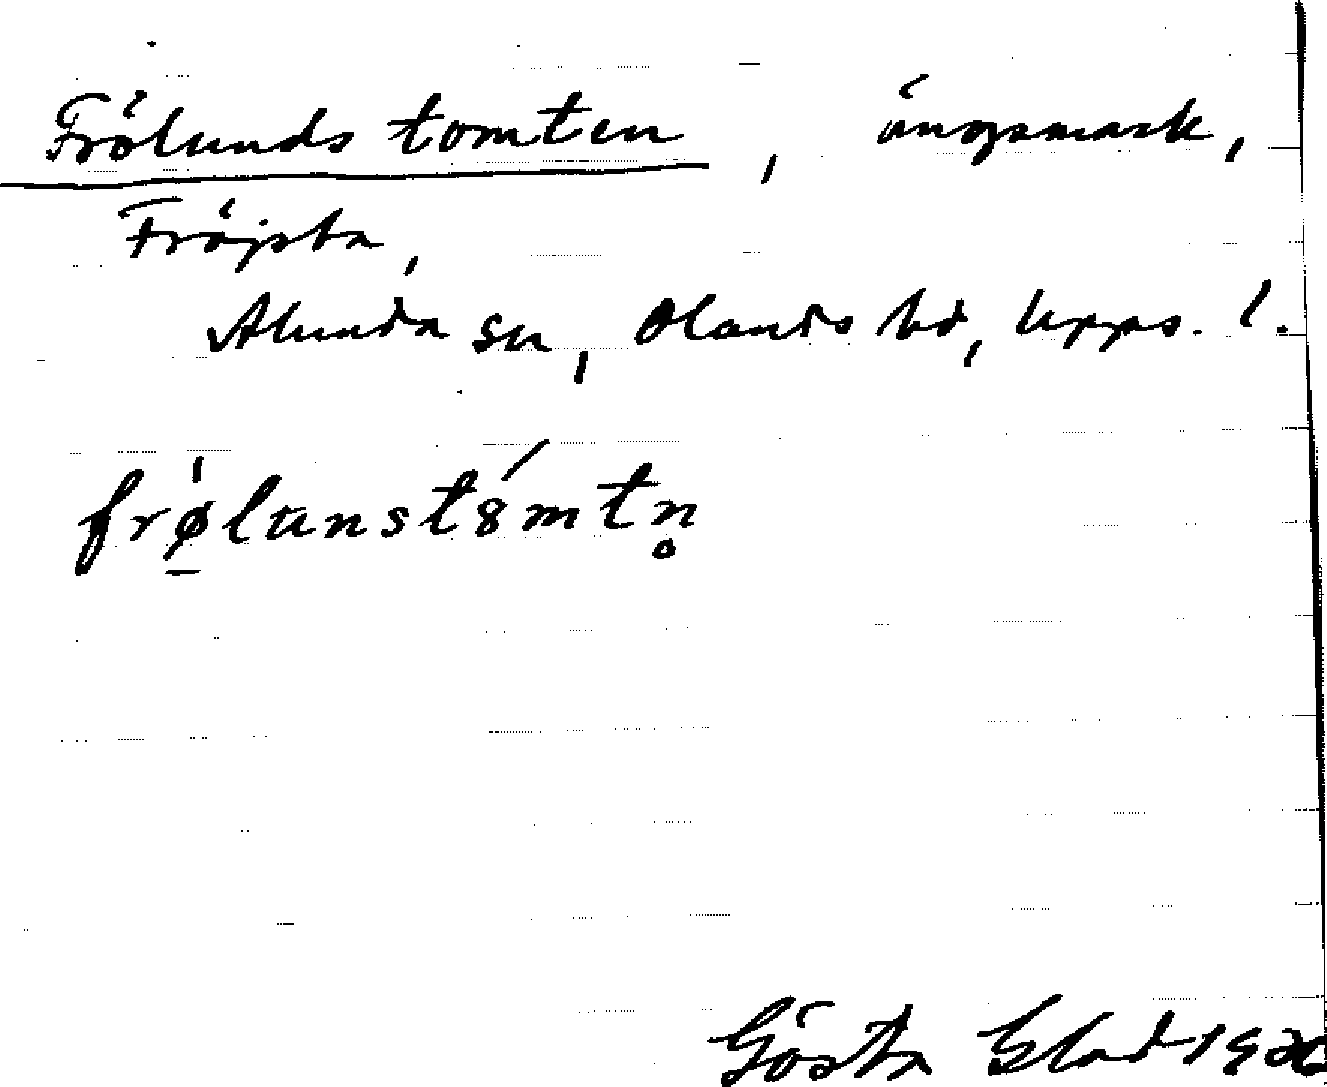 Frölunds tomten, ängsmark,
Fröjsta,
Alunda sn, Olands hd, Upps. l.
frǿ̱lunstȣ́mtn̥
Gösta Elad 192